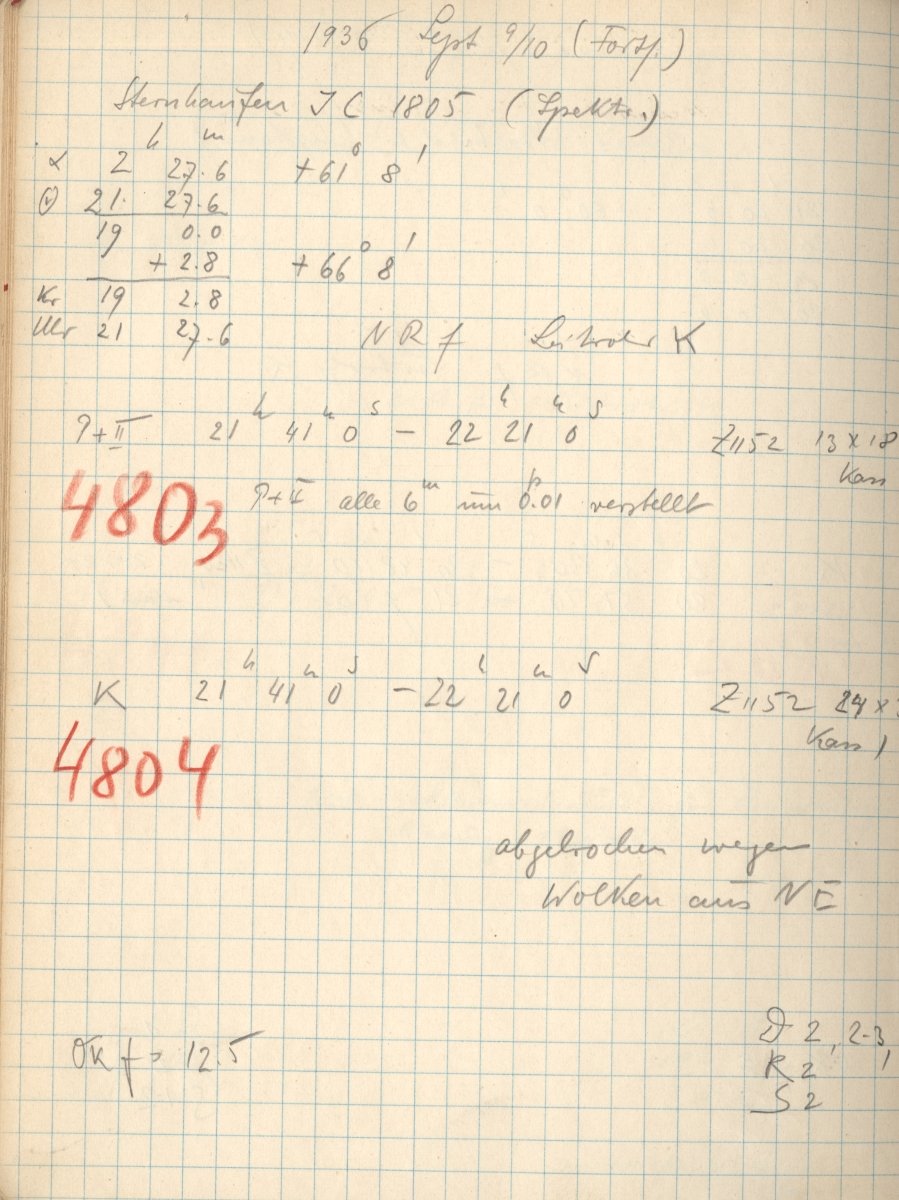 1936 Sept 9/10 (Forts.)
Sternhaufen IC 1805 (Spektr.)
α 2h 27m.6 +61° 8'
21 27.6
19 0.0
+ 2.8 +66° 8'
Kr 19 2.8
Uhr 21 27.6 NR f Leitrohr K
P+II 21h 41m 0s – 22h 21m 0s Z1152 13 x 18
Kass
4803 P+II alle 6m um 0.01 verstellt
K 21h 41m 0s – 22h 21m 0s Z1152 24 x
Kass 1
4804
abgebrochen wegen
Wolken aus NE
Ok f = 12.5
D 2, 2-3,
R 2
S 2